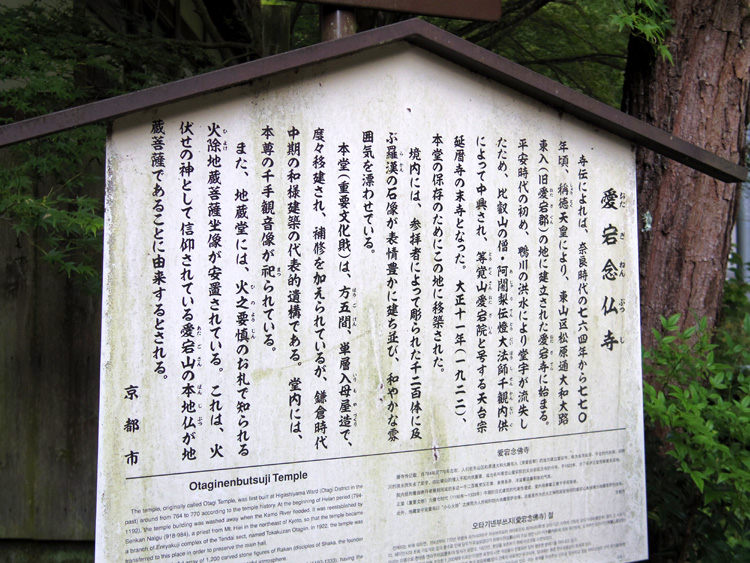 愛宕念仏寺
おたぎねんぶつじ
寺伝によれば、奈良時代の七六四年から七七〇
年頃、稱徳天皇により、東山区松原通大和大路
東入(旧愛宕郡)の地に建立された愛宕寺に始まる。
平安時代の初め、鴨川の洪水により堂宇が流失し
たため、比叡山の僧・阿闍梨伝燈大法師千観内供
によって中興され、等覚山愛宕院と号する天台宗
延暦寺の末寺となった。大正十一年(一九二二)、
本堂の保存のためにこの地に移築された。
境内には、参拝者によって彫られた千二百体に及
ぶ羅漢の石像が表情豊かに建ち並び、和やかな雰
囲気を漂わせている。
本堂(重要文化財)は、方五間、単層入母屋造で、
度々移建され、補修を加えられているが、鎌倉時代
中期の和様建築の代表的遺構である。堂内には、
本尊の千手観音像が祀られている。
また、地蔵堂には、火之要慎のお札で知られる
火除地蔵菩薩坐像が安置されている。これは、火
伏せの神として信仰されている愛宕山の本地仏が地
蔵菩薩であることに由来するとされる。
京都市
Otaginenbutsuji Temple
The temple, originally called Otagi Temple, was first built at Higashiyama Ward (Otagi District in the
past) around from 764 to 770 according to the temple history. At the beginning of Heian period (794
1192), the temple building was washed away when the Kamo River flooded. It was reestablished by
Senkan Naigu (918-984), a priest from Mt. Hiei in the northeast of Kyoto, so that the temple became
a branch of Enryakuji temple of the Tendai sect, named Tokakuzan Otagiin. In 1922, the temple was
transferred to this place in order to preserve the main hall.
array of 1,200 carved stone figures of Rakan (disciples of Shaka, the founder
愛宕念佛寺
오타기넨부쓰지(愛宕念佛寺) 절